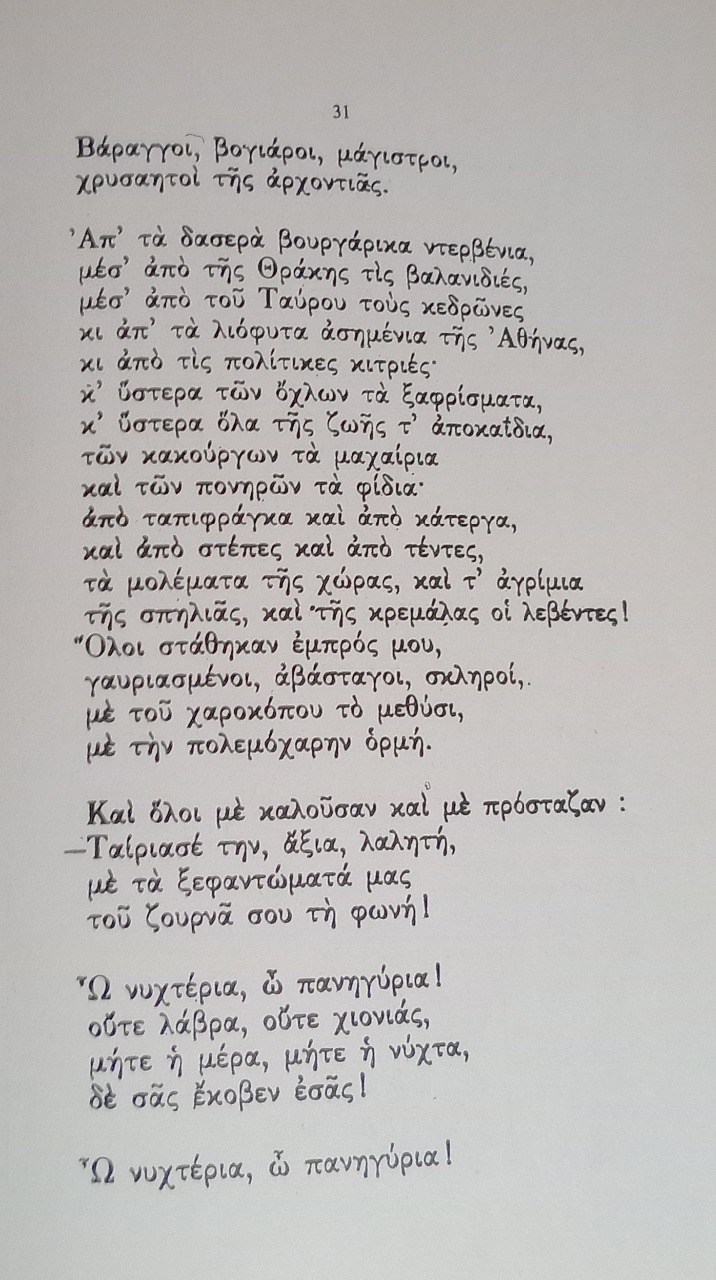 31
Βάραγγοι, βογιάροι, μάγιστροι,
χρυσαητοὶ τῆς ἀρχοντιᾶς.
Ἀπ’ τὰ δασερὰ βουργάρικα ντερβένια,
μέσ’ ἀπὸ τῆς Θράκης τὶς βαλανιδιές,
μέσ’ ἀπὸ τοῦ Ταύρου τοὺς κεδρῶνες
κι ἀπ’ τὰ λιόφυτα ἀσημένια τῆς Ἀθήνας,
κι ἀπὸ τὶς πολίτικες κιτριές·
κ’ ὕστερα τῶν ὄχλων τὰ ξαφρίσματα,
κ’ ὕστερα ὅλα τῆς ζωῆς τ’ ἀποκαΐδια,
τῶν κακούργων τὰ μαχαίρια
καὶ τῶν πονηρῶν τὰ φίδια·
ἀπὸ ταπιφράγκα καὶ ἀπὸ κάτεργα,
καὶ ἀπὸ στέπες καὶ ἀπὸ τέντες,
τὰ μολέματα τῆς χώρας, καὶ τ’ ἀγρίμια
τῆς σπηλιᾶς, καὶ τῆς κρεμάλας οἱ λεβέντες!
Ὅλοι στάθηκαν ἐμπρός μου,
γαυριασμένοι, ἀβάσταγοι, σκληροί,
μὲ τοῦ χαροκόπου τὸ μεθύσι,
μὲ τὴν πολεμόχαρην ὁρμή.
Καὶ ὅλοι μὲ καλοῦσαν καὶ μὲ πρόσταζαν :
—Ταίριασέ την, ἄξια, λαλητή,
μὲ τὰ ξεφαντώματά μας
τοῦ ζουρνᾶ σου τὴ φωνή!
Ὦ νυχτέρια, ὦ πανηγύρια!
οὔτε λάβρα, οὔτε χιονιάς,
μήτε ἡ μέρα, μήτε ἡ νύχτα,
δὲ σᾶς ἔκοβεν ἐσᾶς!
Ὦ νυχτέρια, ὦ πανηγύρια!